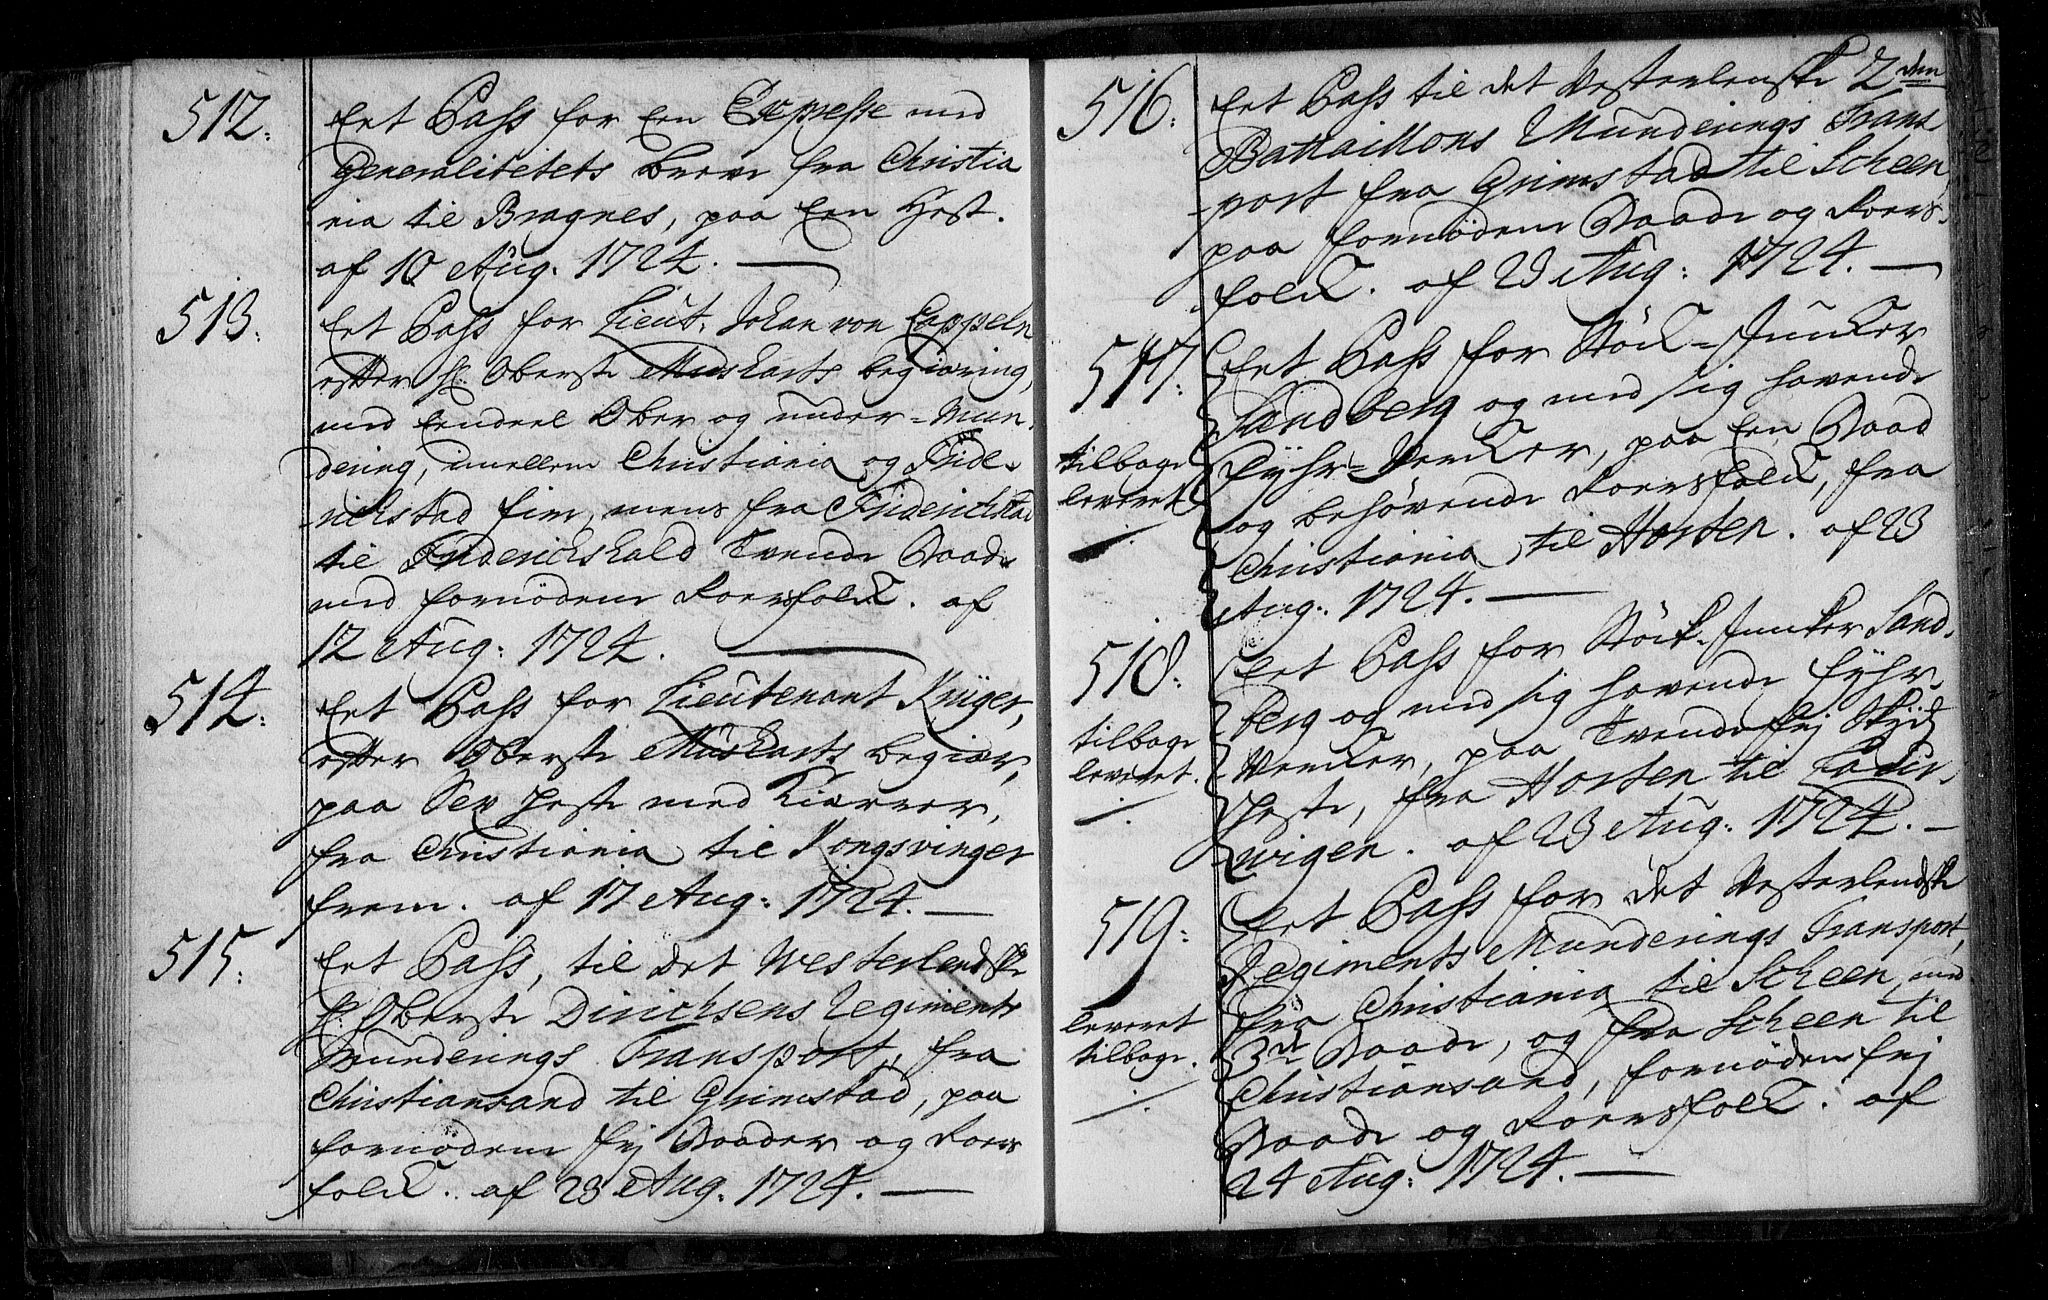 512.
Eet Pass for Een Expresse med
Generalitetets breve fra Christia
nia til Bragnes, paa Een Hest.
af 10 Aug. 1724.
513.
Eet Pass for Lieut. Johan von Cappeln
efter H: Oberste Musharts begiæring,
med Eendeel Ober og under-Mun-
dering, imellem Christiania og Fride-
richstad fire, mens fra Friderichstad
til Friderichshald Tvende Baade
med fornødene Roersfolck. af
12 Aug: 1724.
514.
Eet Pass for Lieutenant Krüger,
efter Oberste Mushartz begiær,
paa Sex heste med Kiærrer,
fra Christiania til Kongsvinger
frem. af 17 Aug: 1724.
515.
Eet Pass, til det Westerlendske
H: Oberste Dirichsens Regiments
Munderings Transport, fra
Christiansand til Grimstad, paa
fornødene frj Baader og Roers
folck. af 23 Aug: 1724.
516.
Eet Pass til det Vesterlenske 2den
Battaillons Munderings Trans
port fra Grimstad til Scheen,
paa fornødene Baade og Roers-
folck. af 23 Aug: 1724.
517.
tilbage
leveret
Eet Pass for Stöck-Juncker
Sandberg og med sig havende
Fyhr-Vercker, paa Een Baad
og behøvende Roersfolck, fra
Christiania til Horten. af 23
Aug: 1724.
518.
tilbage
leveret.
Eet Pass for Stöck-Juncker Sand-
berg og med sig havende Fyhr-
Vercker, paa Tvende frj Skyds
Heste, fra Horten til Laur-
wigen. af 23 Aug: 1724.
519.
leveret
tilbage.
Eet Pass for det Vesterlendske
Regiments Munderings Transport,
fra Christiania til Scheen, med
3de Baade, og fra Scheen til
Christiansand, fornødene frj
Baade og Roersfolck. af
24 Aug: 1724.